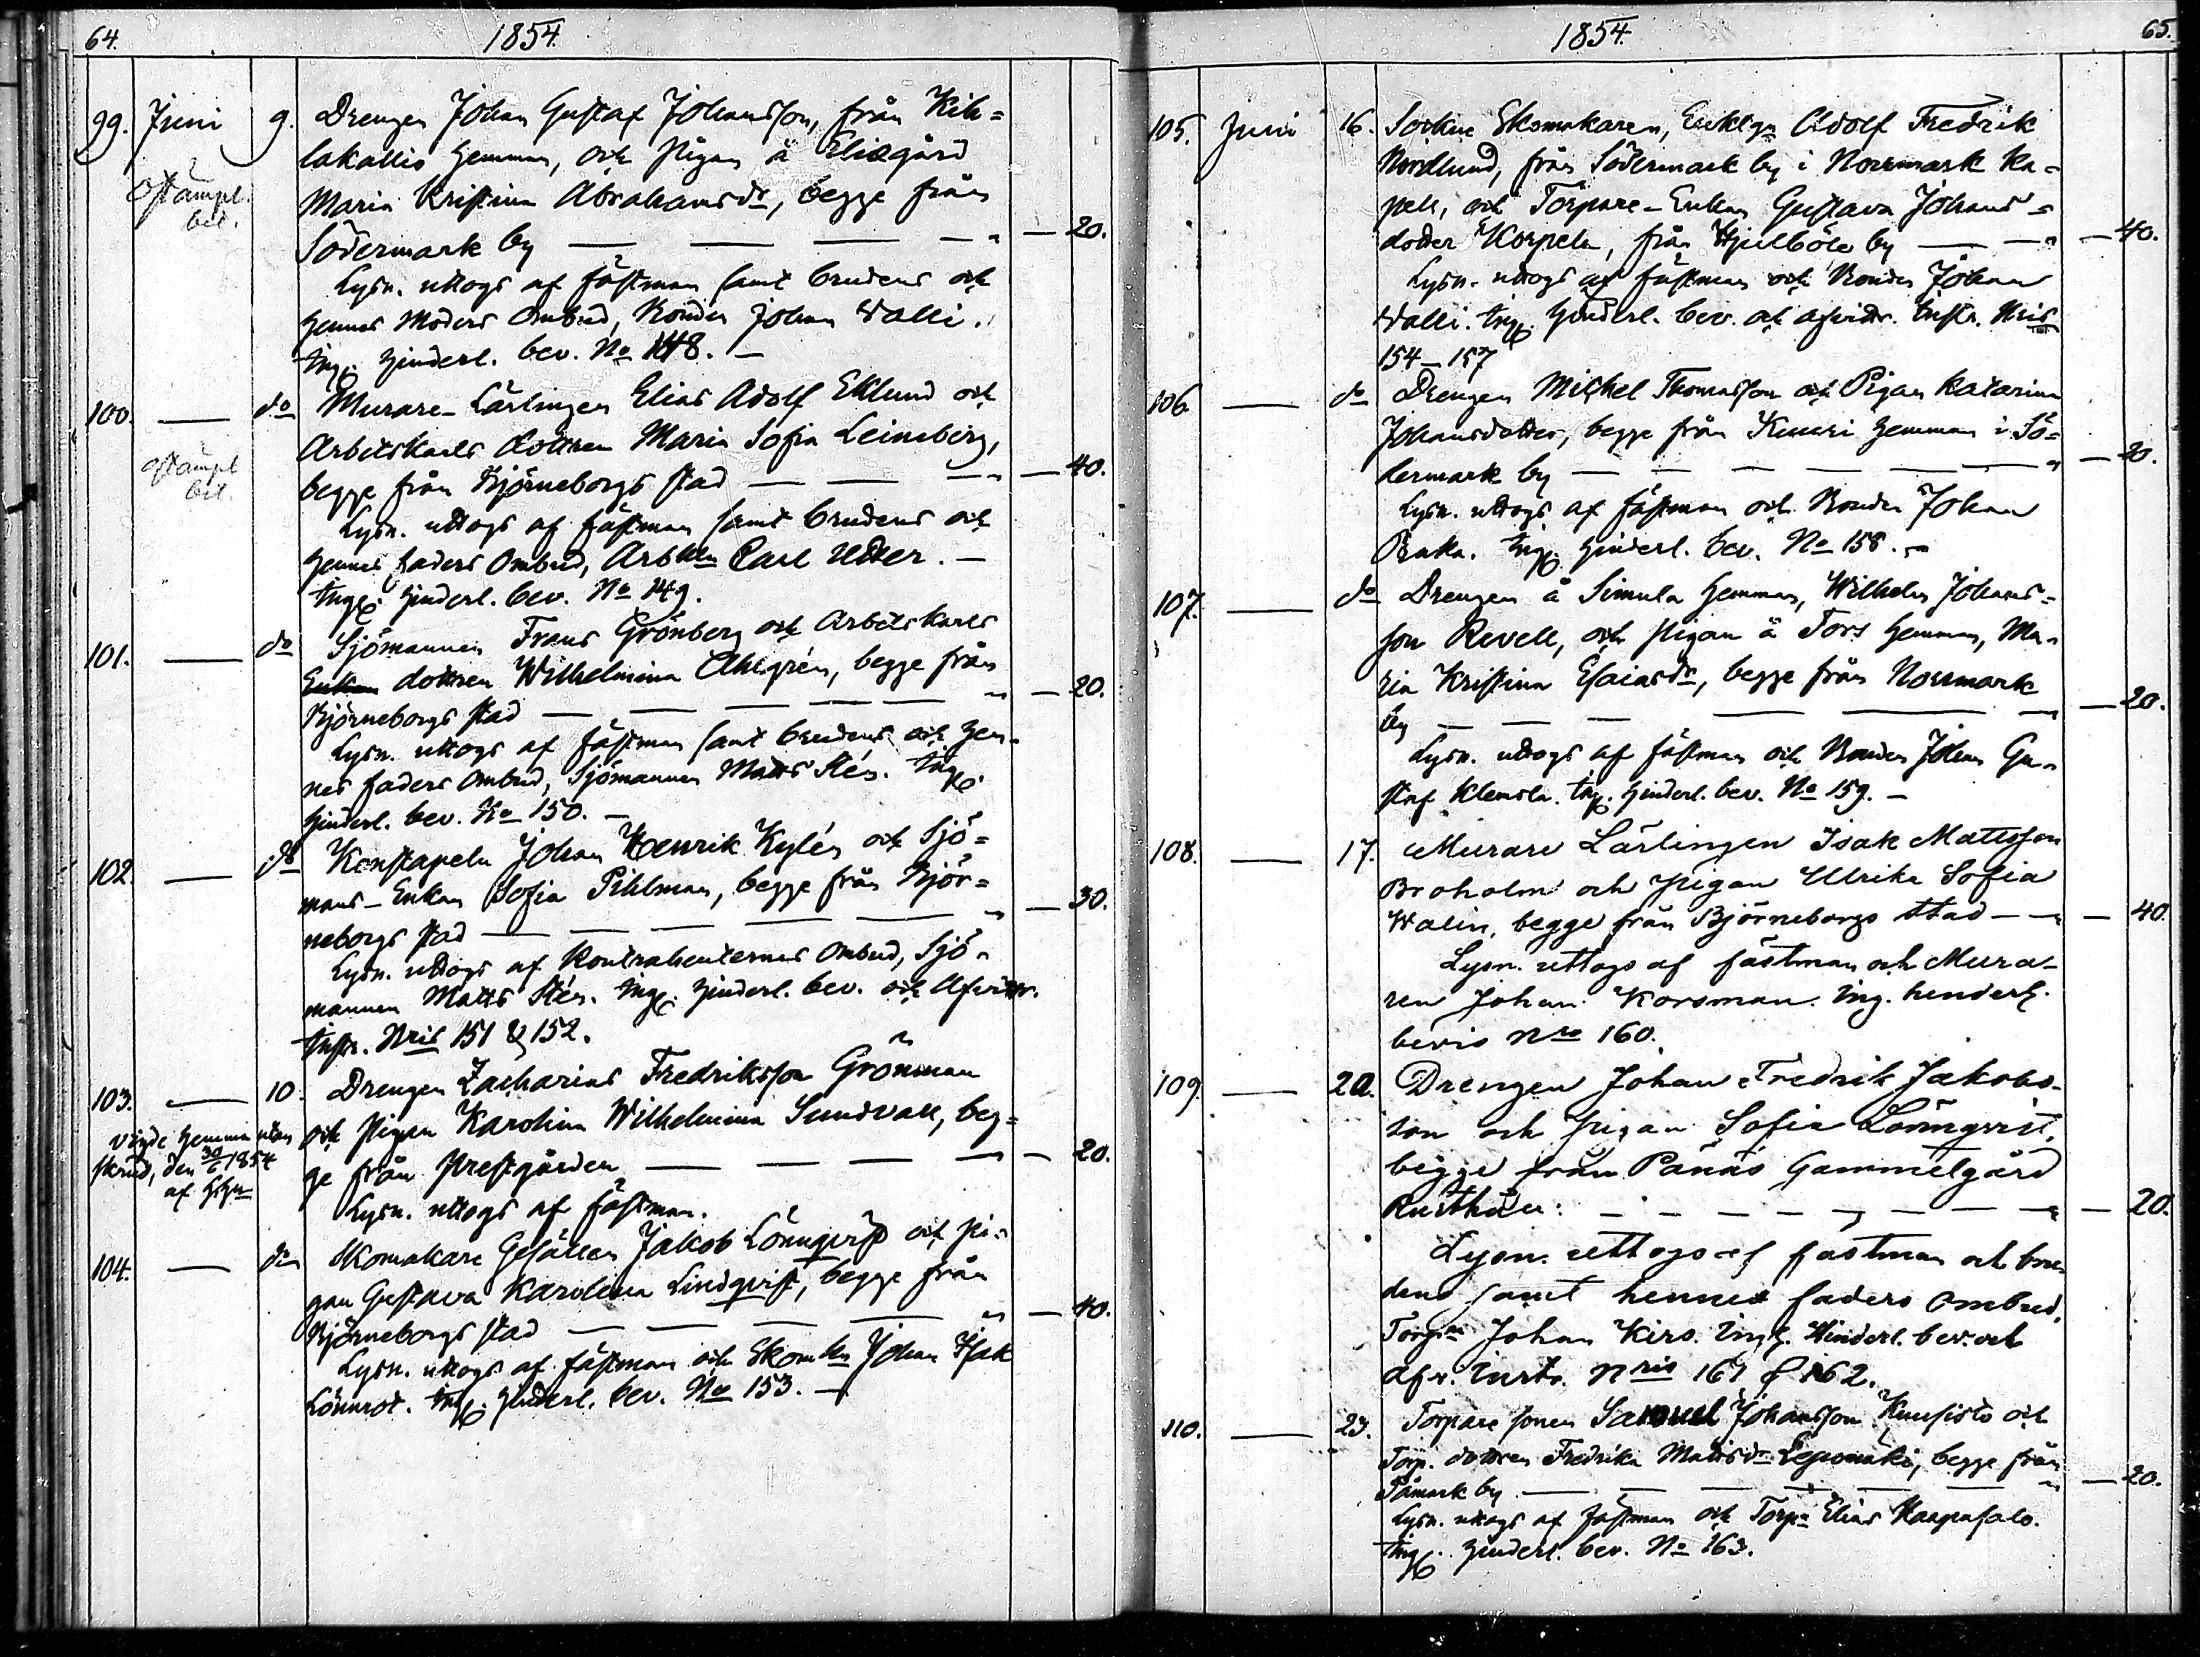 64.
1854.
99. Juni 9. Drengen Johan Gustaf Johansson, från Kih=
lakallis hemman, och pigan å Elisgård
ostämpl.
bet.
Maria Kristina Abrahamsdr, begge från
Södermark by — 20.
Lysn. uttogs af fästman samt brudens och
hennes Moders Ombud, Bonden Johan Walli.
Ingg. hinderl. bev. No 148. —
100. — do Murare-Lärlingen Elias Adolf Eklund och
Arbetskarls dottren Maria Sofia Leineberg,
ostämpl
bet.
begge från Björneborgs stad — 40.
Lysn. uttogs af fästman samt brudens och
hennes faders Ombud, Arbkln Carl Udter. —
Ingg. hinderl. bev. No 149.
101. — do Sjömannen Frans Grönberg och Arbetskarls
Enkan dottren Wilhelmina Ahlgrén, begge från
Björneborgs stad — 20.
Lysn. uttogs af fästman samt brudens och hen-
nes faders Ombud, Sjömannen Matts Stén. Ingg.
hinderl. bev. No 150. —
102. — do Konstapeln Johan Henrik Kylén och Sjö=
mans-Enkan Sofia Pihlman, begge från Björ=
neborgs stad — 30.
Lysn. uttogs af Kontrahenternes Ombud, Sjö-
mannen Matts Stén. Ingg. hinderl. bev. och Afvittr.
Instr. Nris 151 & 152.
103. — 10. Drengen Zacharias Fredriksson Grönman
och pigan Karolina Wilhelmina Sundvall, beg=
vigde hemma utan
skrud, den 30/6 1854
af
ge från Prestgården — 20.
Lysn. uttogs af fästman.
104. — do Skomakare Gesällen Jakob Lönnqvist och pi-
gan Gustava Karolina Lindqvist, begge från
Björneborgs stad — 40.
Lysn. uttogs af fästman och Skomkn Johan Isak
Lönnrot. Ingg. hinderl. bev. No 153. —
1854.
65.
105. Juni 16. Sockne Skomakaren, Enklgn Adolf Fredrik
Nordlund, från Södermark by i Norrmark Ka=
pell, och Torpare-Enkan Gustava Johans=
dotter Korpela, från Hjulböle by — 40.
Lysn. uttogs af fästman och Bonden Johan
Walli. Ingg. hinderl. bev. och afvittr. Instr. Nris
154—157
106. — do Drengen Michel Thomasson och Pigan Katarina
Johansdotter, begge från Knuuri hemman i Sö=
dermark by — 20.
Lysn. uttogs af fästman och Bonden Johan
Ingg. hinderl. bev. No 158. —
107. — do Drengen å Simula hemman, Wilhelm Johans=
son Revell, och pigan å Tors hemman, Ma-
ria Kristina Esaiasdr, begge från Norrmark
by — 20.
Lysn. uttogs af fästman och Bonden Johan Gu-
staf Klemola. Ingg. hinderl. bev. No 159. —
108. — 17. Murare Lärlingen Isak Mattsson
Broholm och pigan Ulrika Sofia
Walin, begge från Björneborgs stad — 40.
Lysn. uttogs af fästman och Mura-
ren Johan Korsman. Ing. henderl.
bevis Nro 160.
109. — 20. Drengen Johan Fredrik Jakobs-
son och pigan Sofia Lönnqvist,
begge från Pänäs Gammelgård
Rusthåll: — 20.
Lysn. uttogs af fästman och bru-
dens samt hennes faders Ombud,
Torpn Johan Kiro. Ingg. Hinderl. bev. och
Afv. Instr. Nris 161 & 162.
110. — 23. Torpare sonen Samuel Johansson Kuusisto och
Torp. dottren Fredrika Mattsdr Leponiäki, begge från
Påmark by — 20.
Lysn. uttogs af fästman och Torpn Elias Haapasalo.
Ingg. hinderl. bev. No 163.